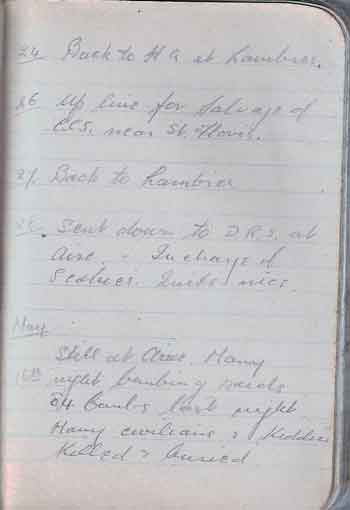 24 Back to H Q at Lambres.
26 Up line for Salvage of
C.C.S. near St. Venant.
27. Back to Lambres
28. Sent down to D.R.S. at
Aire. - In charge of
Scabies. Quite nice.
May
Still at Aire. Many
16th night bombing raids
84 bombs last night
Many civilians & Kiddies
Killed & buried